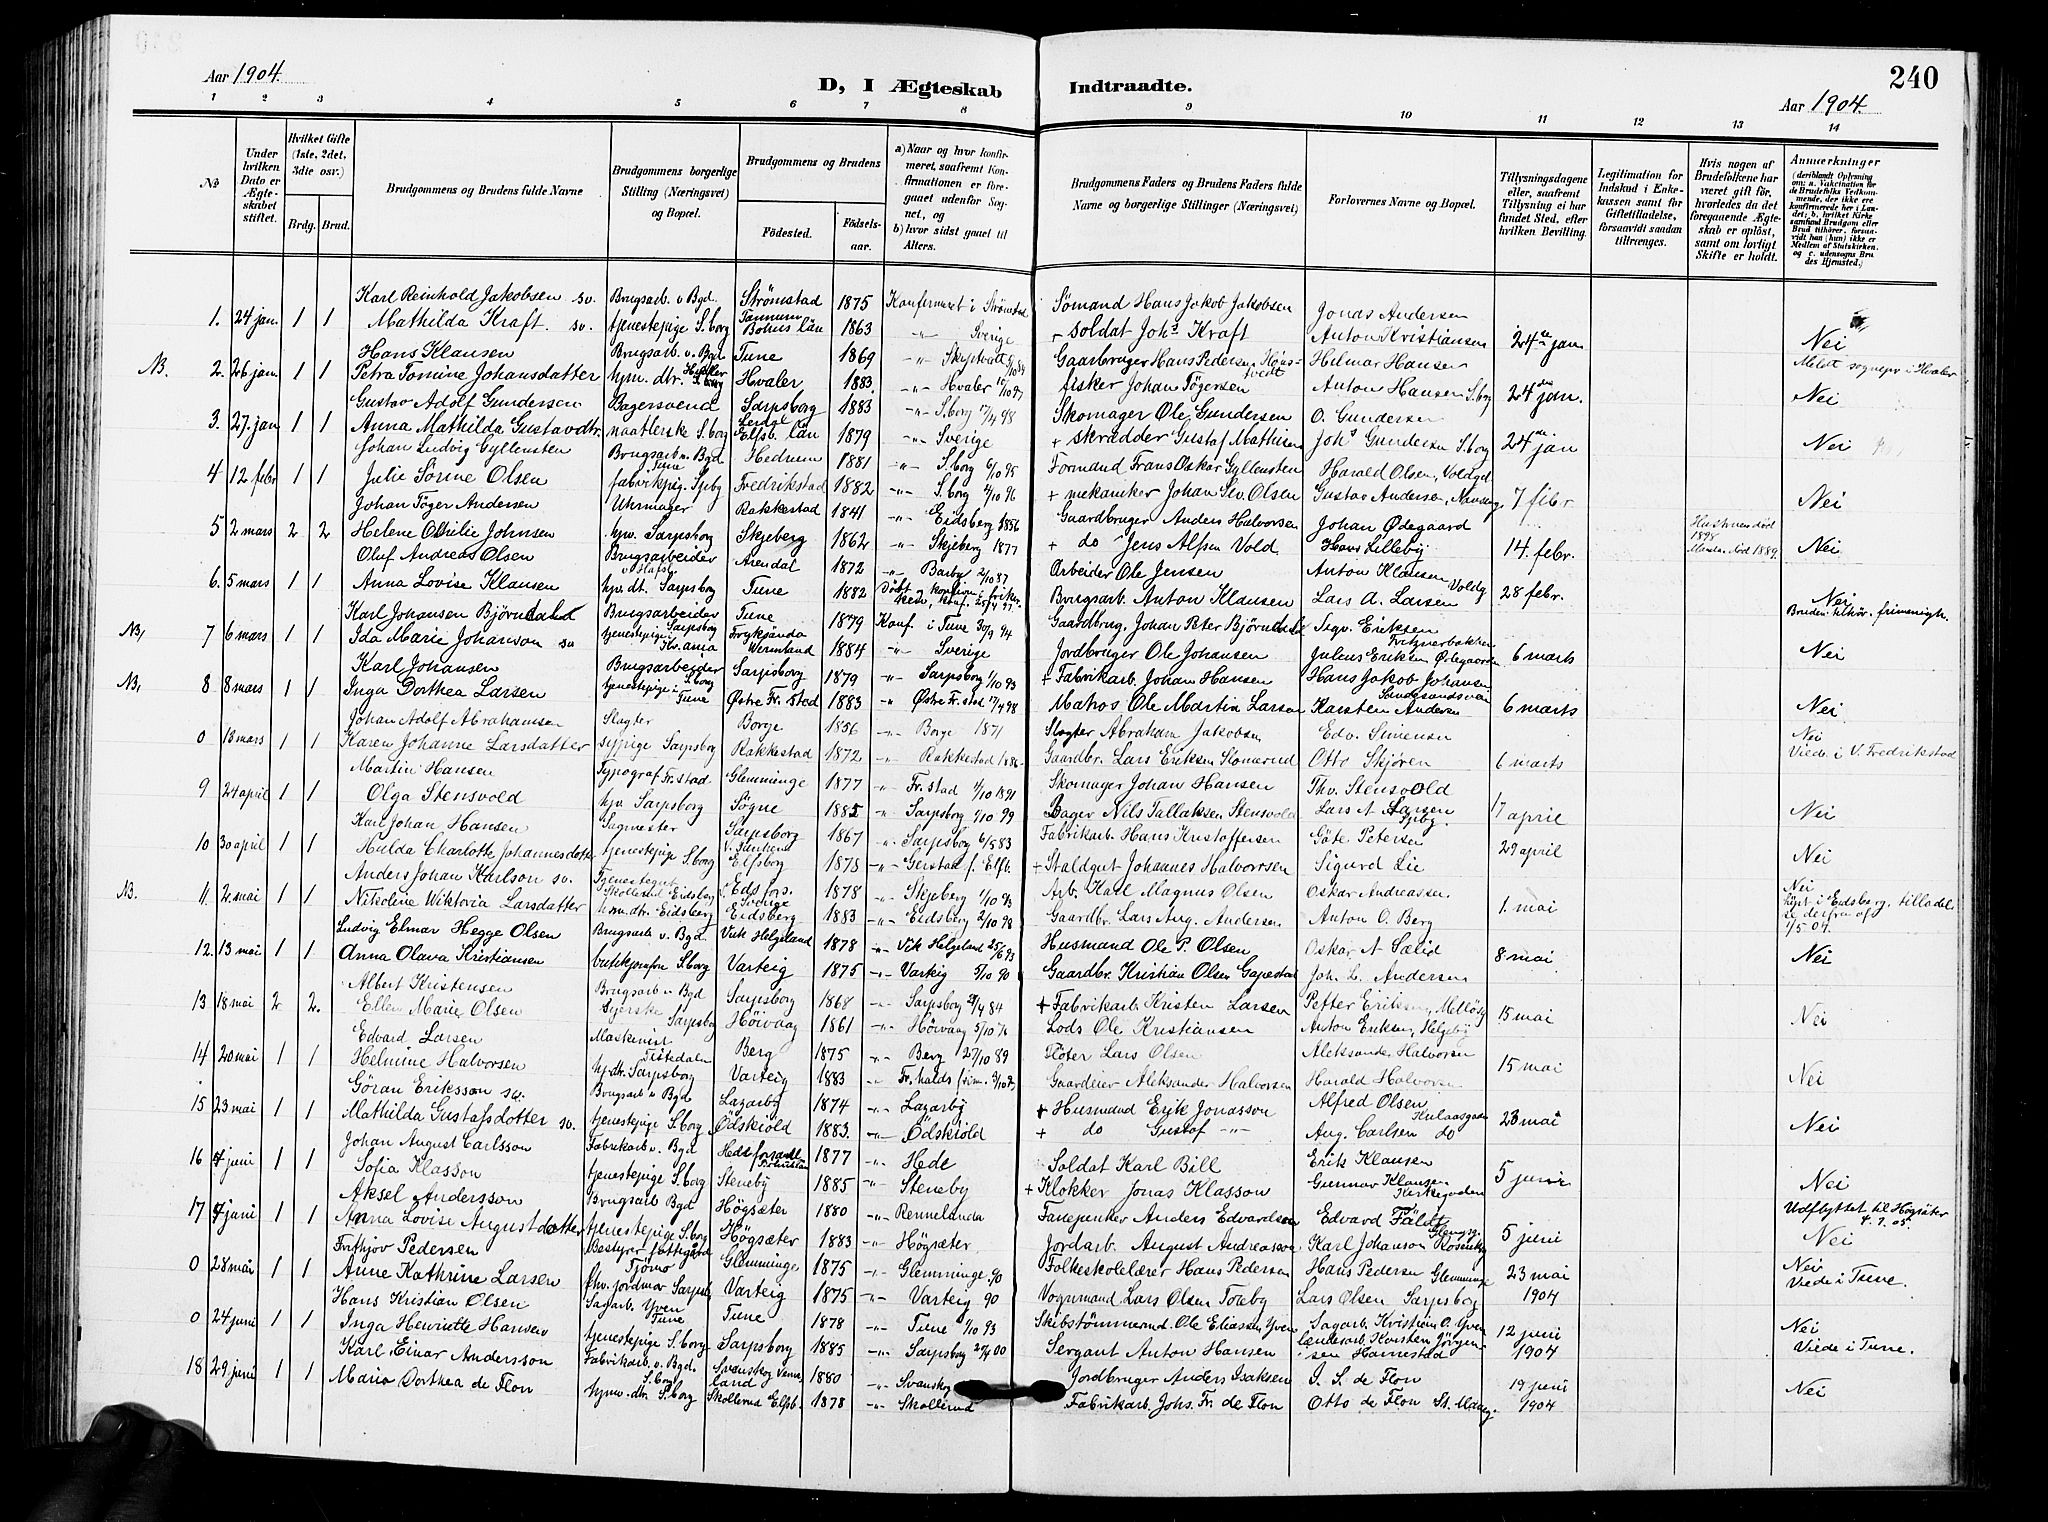 Aar 1904.
D, I Ægteskab Indtraadte.
240
Aar 1904.
1 2 3 4 5 6 7 8 9 10 11 12 13 14
No
Under hvilken Dato er Ægteskabet stiftet.
Hvilket Gifte (1ste, 2det, 3die osv.)
Brdg. Brud.
Brudgommens og Brudens fulde Navne
Brudgommens borgerlige Stilling (Næringsvei) og Bopæl.
Brudgommens og Brudens
Fødested. Fødselsaar.
a) Naar og hvor konfirmeret, saafremt Konfirmationen er foregaaet udenfor Sognet, og b) hvor sidst gaaet til Alters.
Brudgommens Faders og Brudens Faders fulde Navne og borgerlige Stillinger (Næringsvei)
Forlovernes Navne og Bopæl.
Tillysningsdagene eller, saafremt Tillysning ei har fundet Sted, efter hvilken Bevilling.
Legitimation for Indskud i Enkekassen samt for Giftetilladelse, forsaavidt saadan tiltrænges.
Hvis nogen af Brudefolkene har været gift før, hvorledes da det foregaaende Ægteskab er opløst, samt om lovligt Skifte er holdt.
Anmærkninger (deriblandt Oplysning om: a. Vakcination for de Brudefolks Vedkommende, der ikke ere konfirmerede her i Landet; b. hvilket Kirkesamfund Brudgom eller Brud tilhører, forsaavidt han (hun) ikke er Medlem af Statskirken, og c. udensogns Brudes Hjemsted.)
Karl Reinhold Jakobsen sv. Brugsarb. v Bgd. Strømstad 1875 Konfirmeret i Strømstad Sømand Hans Jakob Jakobsen Jonas Andersen
1. 24 jan. 1 1 Mathilda Kraft. sv. tjenestepige S.borg Tannum Bohus län 1863 -"- Sverige soldat Johs Kraft Anton Kristiansen 24de jan Nei
Hans Klausen Brugsarb. v. Bgd Tune 1869 -"- Skiptvedt Gaarbruger Hans Pedersen Hilmar Hansen Meldt sognepr i Hvaler
NB. 2. 26 jan. 1 1 Petra Tomine Johansdatter hjm. dtr. S.borg Hvaler 1883 -"- Hvaler fisker Johan Tögersen Anton Hansen S.borg 24de jan. Nei
Gustav Adolf Gundersen Bagersvend Sarpsborg 1883 -"- S.borg 17/4 98 Skomager Ole Gundersen O. Gundersen
3. 27. jan 1 1 Anna Mathilda Gustavdtr. naatlerske S.borg Elfsb. län 1879 -"- Sverige + skrædder Gustaf Mathisen Johs Gundersen S.borg 24de jan Nei
Johan Ludvig Gyllensten Brugsarb. v. Bgd Tune Hedrum 1881 -"- S.borg 6/10 95 Formand Frans Oskar Gyllensten Harald Olsen, Voldgd
4 12 febr 1 1 Julie Sörine Olsen fabrikpig. Fredrikstad 1882 -"- S.borg 4/10 96 + mekaniker Johan Sev. Olsen Gustav Andersen, 7 febr Nei
Johan Töger Andersen Uhrmager Rakkestad 1841 -"- Eidsberg 1856 Gaardbruger Anders Halvorsen Johan Ødegaard Hustruen död 1898
5 2 mars 2 2 Helene Otilie Johnsen hjv. Sarpsborg Skjeberg 1862 -"- Skjeberg 1877 + do Jens Alfsen Vold Hans Lilleby 14. febr. Manden död 1889 Nei
Oluf Andreas Olsen Brugsarbeider v Hafsl. Arendal 1872 -"- Barby 2/10 87 Arbeider Ole Jensen Anton Klausen Voldg
6. 5 mars 1 1 Anna Lovise Klausen hjv. dt. Sarpsborg Tune 1882 Döbt og konfirm. i frikirken, konf. Brugsarb. Anton Klausen Lars A. Larsen 28 febr. Nei Bruden tilhör. frimenigh.
Karl Johansen Björndalsd Brugsarbeider Tune 1879 Konf. i Tune 30/9 94 Gaardbrug. Johan Peter Sigv. Eriksen
NB, 7 6 mars 1 1 Ida Marie Johanson sv tjenestepige Kr.ania Wermland 1884 -"- Sverige Jordbruger Ole Johansen Julius Eriksen Ødegaarden 6 marts Nei
Karl Johansen Brugsarbeider Sarpsborg 1879 -"- Sarpsborg 1/10 93 + Fabrikarb. Johan Hansen Hans Jakob Johansen
NB, 8 8 mars 1 1 Inga Dorthea Larsen tjenestepige i Tune Østre Fr.stad 1883 -"- Østre Fr.stad 17/4 98 Matros Ole Martin Larsen Karsten Andersen 6 marts Nei
Johan Adolf Abrahamsen Slagter Borge 1856 -"- Borge 1871 Slagter Abraham Jakobsen Edv. Simensen Nei
0 18 mars 1 1 Karen Johanne Larsdatter sypige Sarpsborg Rakkestad 1872 -"- Rakkestad 1886 Gaardbr. Lars Eriksen Otto Skjören 6 marts Viede i V. Fredrikstad
Martin Hansen Typograf Fr.stad Glemminge 1877 -"- Fr.stad 4/10 1891 Skomager Johan Hansen Thv. Stensvold
9 24 april 1 1 Olga Stensvold hjv Sarpsborg Søgne 1885 -"- Sarpsborg 1/10 99 Bager Nils Tallaksen Stensvold Lars A. Larsen 17 april Nei
Karl Johan Hansen Sagmester Sarpsborg 1867 -"- Sarpsborg 6/5 83 Fabrikarb. Hans Kristoffersen Göte Petersen
10 30 april 1 1 Hulda Charlotte Johannesdotter tjenestepige S.borg Elfsborg 1873 -"- + Staldgut Johannes Halvorsen Sigurd Lie 29 april Nei
Anders Johan Karlson sv. Tjenestegut Eidsberg Edsfors. Sverige 1878 -"- Skjeberg 1/10 93 Arb. Karl Magnus Olsen Oskar Andreassen Nei
NB. 11. 2. mai 1 1 Nikoline Wiktoria Larsdatter hjm. dtr. Eidsberg Eidsberg 1883 -"- Eidsberg 2/10 98 Gaardbr. Lars Aug. Andersen Anton O. Berg 1. mai lyst i Eidsberg, tilladelse derfra af 1/5 04.
Ludvig Elmar Hegge Olsen Brugsarb v. Bgd. Vik Helgeland 1878 -"- Vik Helgeland 25/6 93 Husmand Ole P. Olsen Oskar A Sælid
12. 13 mai 1 1 Anna Olava Kristiansen butikjomfru S.borg Varteig 1875 -"- Varteig 5/10 90 Gaardbr. Kristian Olsen Joh. L. Andersen 8 mai Nei
Albert Kristensen Brugsarb v Bgd Sarpsborg 1868 -"- Sarpsborg 27/4 84 + Fabrikarb Kristen Larsen Petter Eriksen
13 18 mai 2 2. Ellen Marie Olsen Syerske Sarpsborg Höivaag 1861 -"- Höivaag 5/10 76 Lods Ole Kristiansen Anton Eriksen, Helgeby 15 mai Nei
Edvard Larsen Maskinist Tistedalen Berg 1875 -"- Berg 27/10 89 Flöter Lars Olsen Aleksander Halvorsen
14 20 mai 1 1 Helmine Halvorsen hj.dtr. Sarpsborg Varteig 1883 -"- Fr.halds frim. Gaardeier Aleksander Halvorsen Harald Halvorsen 15 mai Nei
Göran Eriksson sv. Brugsarb v Bgd Lazarby 1874 -"- Lazarby + Husmand Erik Jonasson Alfred Olsen
15 23 mai 1 1 Mathilda Gustafsdotter sv. tjenestepige S.borg Ödskiöld 1883. -"- Ödskiöld + do Gustaf -"- Aug. Carlsen do 23 mai Nei
Johan August Carlsson Fabrikarb v. Bgd 1877 -"- Hede Soldat Karl Bill Erik Klausen
16 juni 1 1 Sofia Klasson tjenestepige S.borg Steneby 1885 -"- Steneby + Klokker Jonas Klasson Gunnar Klausen Kirkegaden 5 juni Nei
Aksel Andersson Brugsarb Bgd Högsæter 1880 -"- Rennelanda Fanejunker Anders Edvardson Edvard Fäldt Udflyttet til Högsäter 4.7.05.
17 juni 1 1 Anna Lovise Augustdotter tjenestepige S.borg Högsæter 1883 -"- Högsæter Jordarb. August Andreasson Karl Johanson 5 juni Nei
Frithjov Pedersen Bestyrer fattegaard Tjömö Glemminge 1875 -"- Glemminge 90 Folkeskolelærer Hans Pedersen Hans Pedersen Glemminge Nei
0 28 mai 1 1 Anne Kathrine Larsen fhv. jordmor Sarpsb Varteig 1875 -"- Varteig 90 Vognmand Lars Olsen Toreby Lars Olsen Sarpsborg 23 mai 1904 Viede i Tune.
Hans Kristian Olsen Sagarb. Yven Tune Tune 1878 -"- Tune 1/10 93 Skibstömmermd. Ole Eliassen Yven Sagarb. Kristian O. Yven Nei
0 24 juni 1 1 Inga Henriette Hansen tjenestepige S.borg Sarpsborg 1885 -"- Sarpsborg Sergant Anton Hansen Karsten Jörgensen Hannestad 12 juni 1904 Viede i Tune.
Karl Einar Andersson Fabrikarb. v. Bgd. Svanskog Vermland 1880 -"- Svanskog Jordbruger Anders Isaksen J. S. de Flon
18 29 juni 1 1 Maria Dorthea de Flon hjm. dtr. S.borg Skollerud Elfsb. 1878 -"- Skollerud Fabrikarb. Johs. Fr. de Flon Otto de Flon 19 juni 1904 Nei